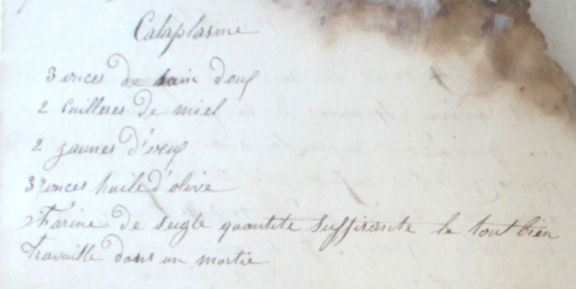 Cataplasme
3 onces de sain doux
2 cuilleres de miel
2 jaunes d'oeuf
3 onces huile d'olive
Farine de seigle quantité suffisante le tout bien
travaillé dans un mortie